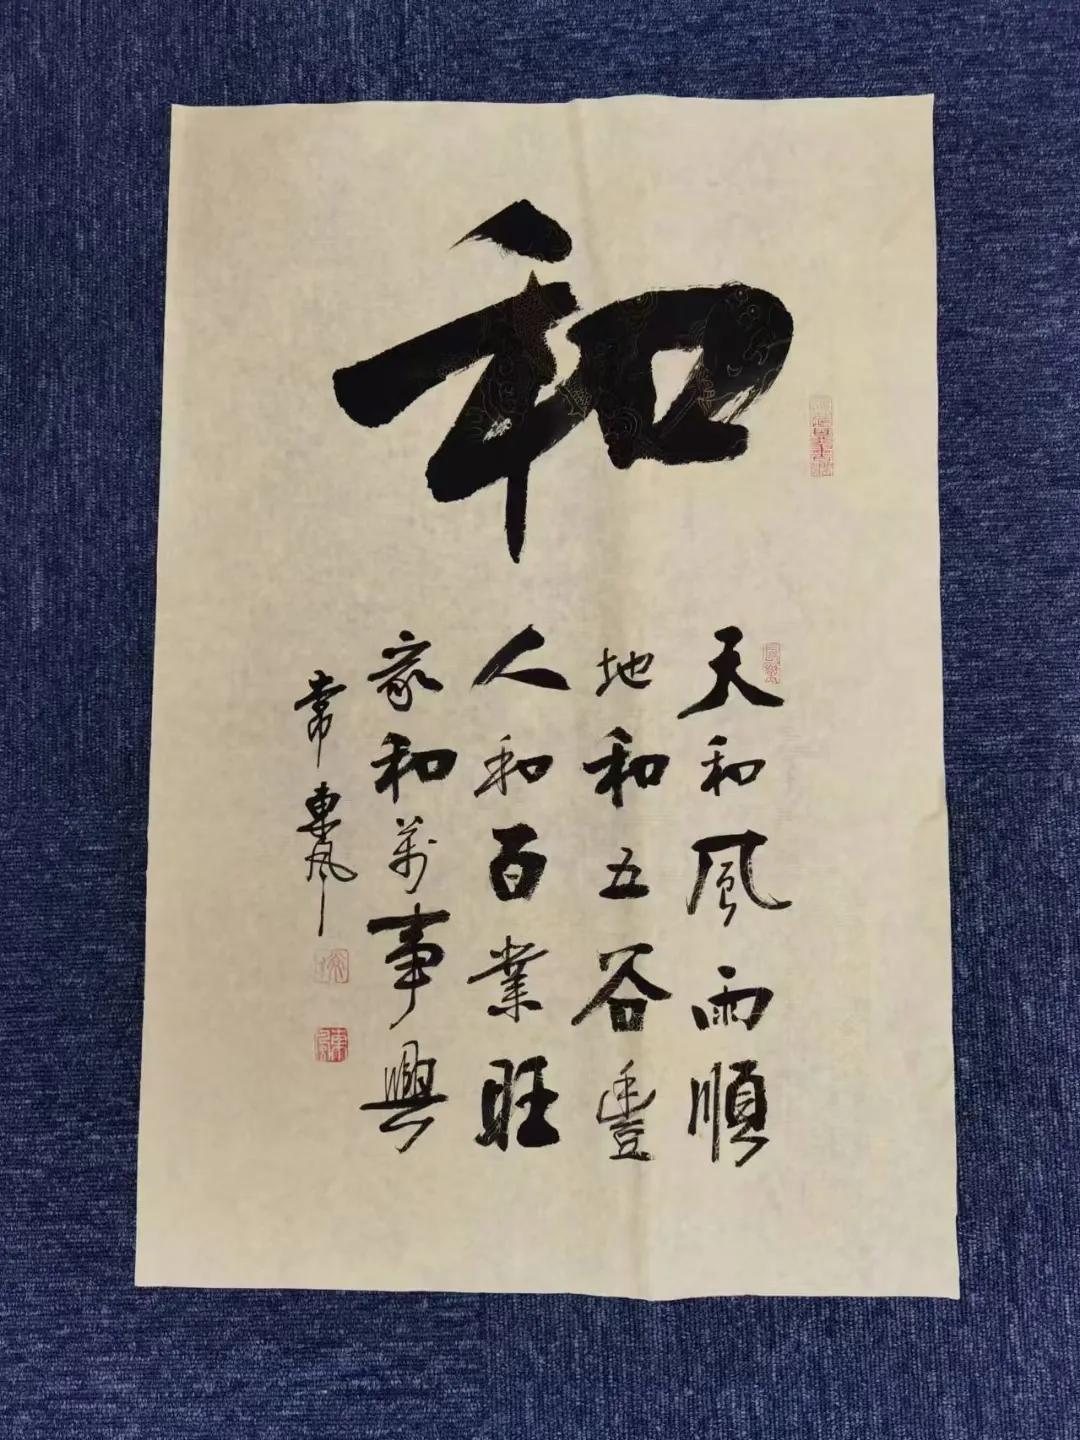 和
天和風雨順
地和五谷豐
人和百業旺
家和萬事興
常東風